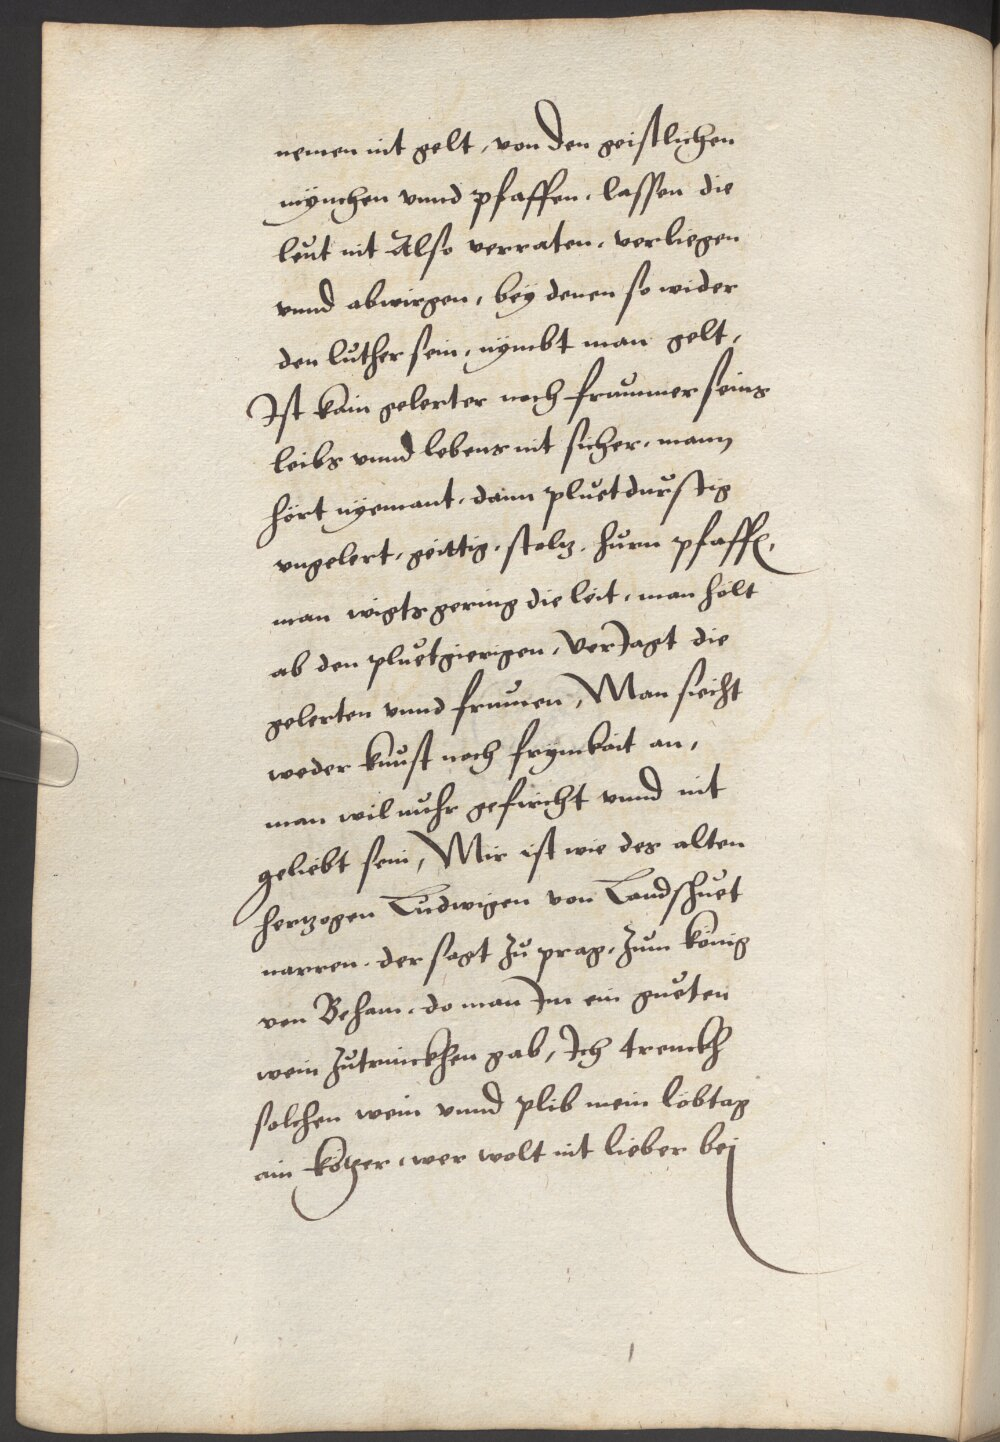 nemen nit gelt, von den geistlichen
mÿnchen vnnd pfaffen, lassen die
leut nit Also verraten, verliegen
vnnd abwirgen, beÿ denen so wider
den luther sein, nÿmbt man gelt,
Ist kain gelerter noch frummer seins
leibs vnnd lebens nit sicher, mann
hört nÿemant, dann pluetdurstig
vngelert, geittig, stoltz, hurn pfaffen,
man wigts gering die leit, man holt
ab den pluetgierigen, Verjagt die
gelerten vnnd frumen, Man siecht
weder kunst noch frymkait an,
man wil nuhr gefircht vnnd nit
geliebt sein, Mir ist wie des alten
hertzogen Ludwigen von Landshuet
narren, der sagt zu prag, zum könig
von Beham, do man Im ein gueten
wein zutrinckhen gab, Ich trenckh
solchen wein vnnd plib mein lebtag
ain ketzer, wer wolt nit lieber bei